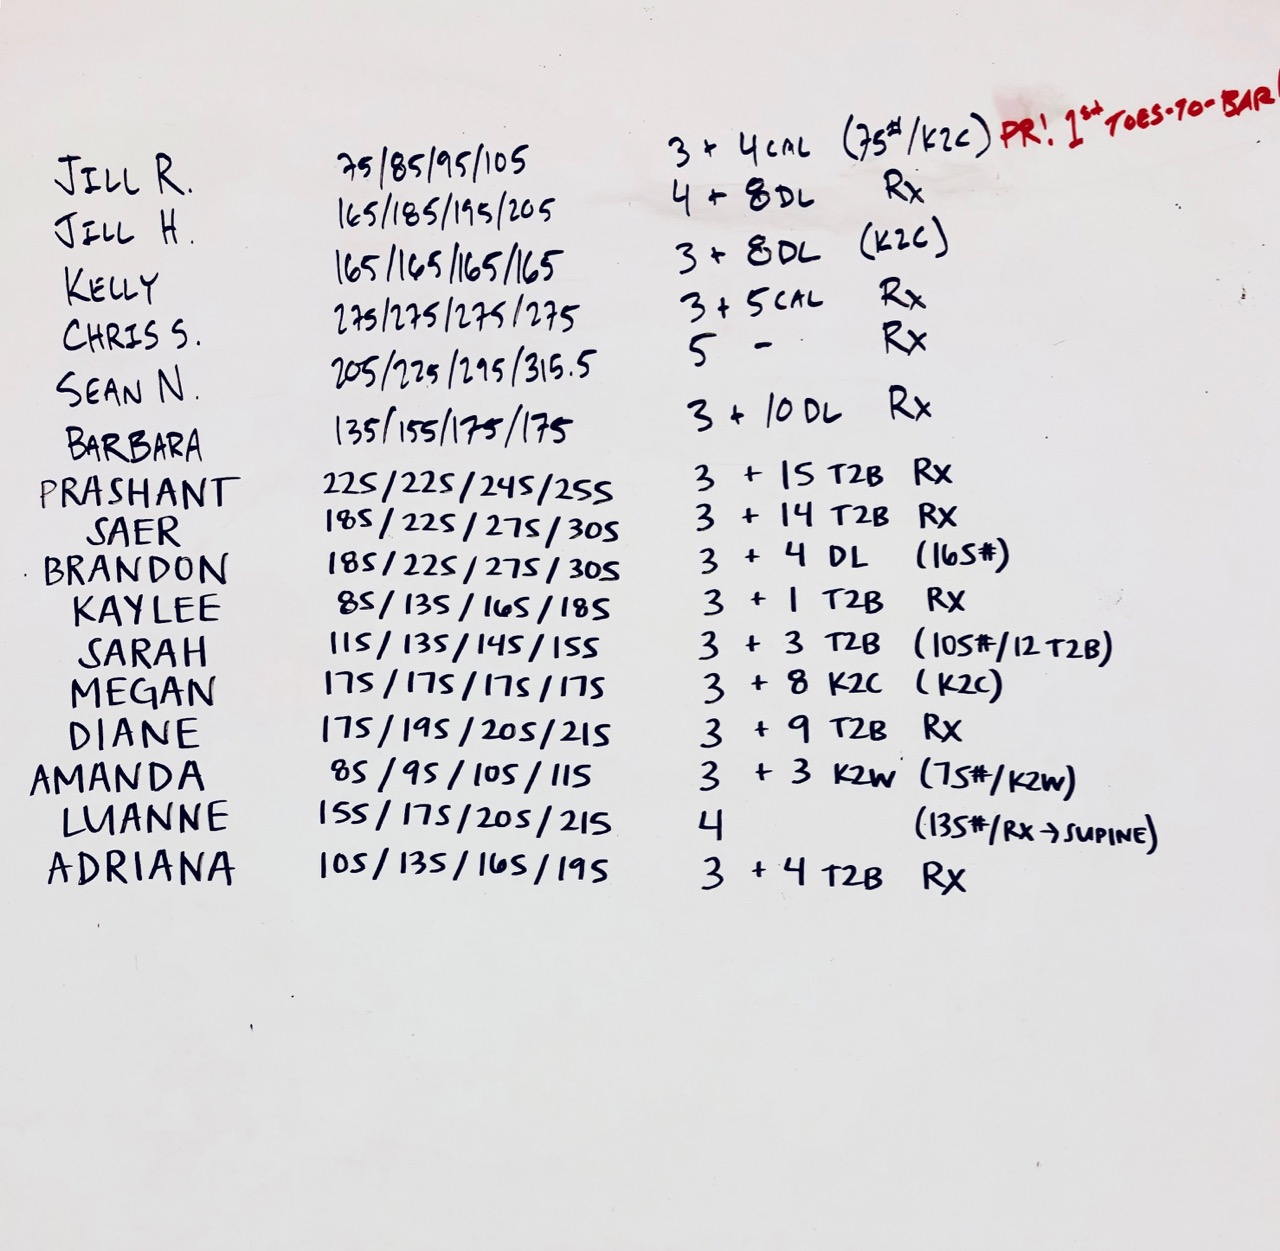 JILL R. 75/85/95/105 3 + 4 CAL (75#/K2C) PR! 1st TOES-TO-BAR!
JILL H. 165/185/195/205 4 + 8 DL Rx
KELLY 165/165/165/165 3 + 8 DL (K2C)
CHRIS S. 275/275/275/275 3 + 5 CAL Rx
SEAN N. 205/225/295/315.5 5 - Rx
BARBARA 135/155/175/175 3 + 10 DL Rx
PRASHANT 225/225/245/255 3 + 15 T2B Rx
SAER 185/225/275/305 3 + 14 T2B Rx
BRANDON 185/225/275/305 3 + 4 DL (165#)
KAYLEE 85/135/165/185 3 + 1 T2B Rx
SARAH 115/135/145/155 3 + 3 T2B (105#/12 T2B)
MEGAN 175/175/175/175 3 + 8 K2C (K2C)
DIANE 175/195/205/215 3 + 9 T2B Rx
AMANDA 85/95/105/115 3 + 3 K2W (75#/K2W)
LUANNE 155/175/205/215 4 (135#/RX→SUPINE)
ADRIANA 105/135/165/195 3 + 4 T2B Rx